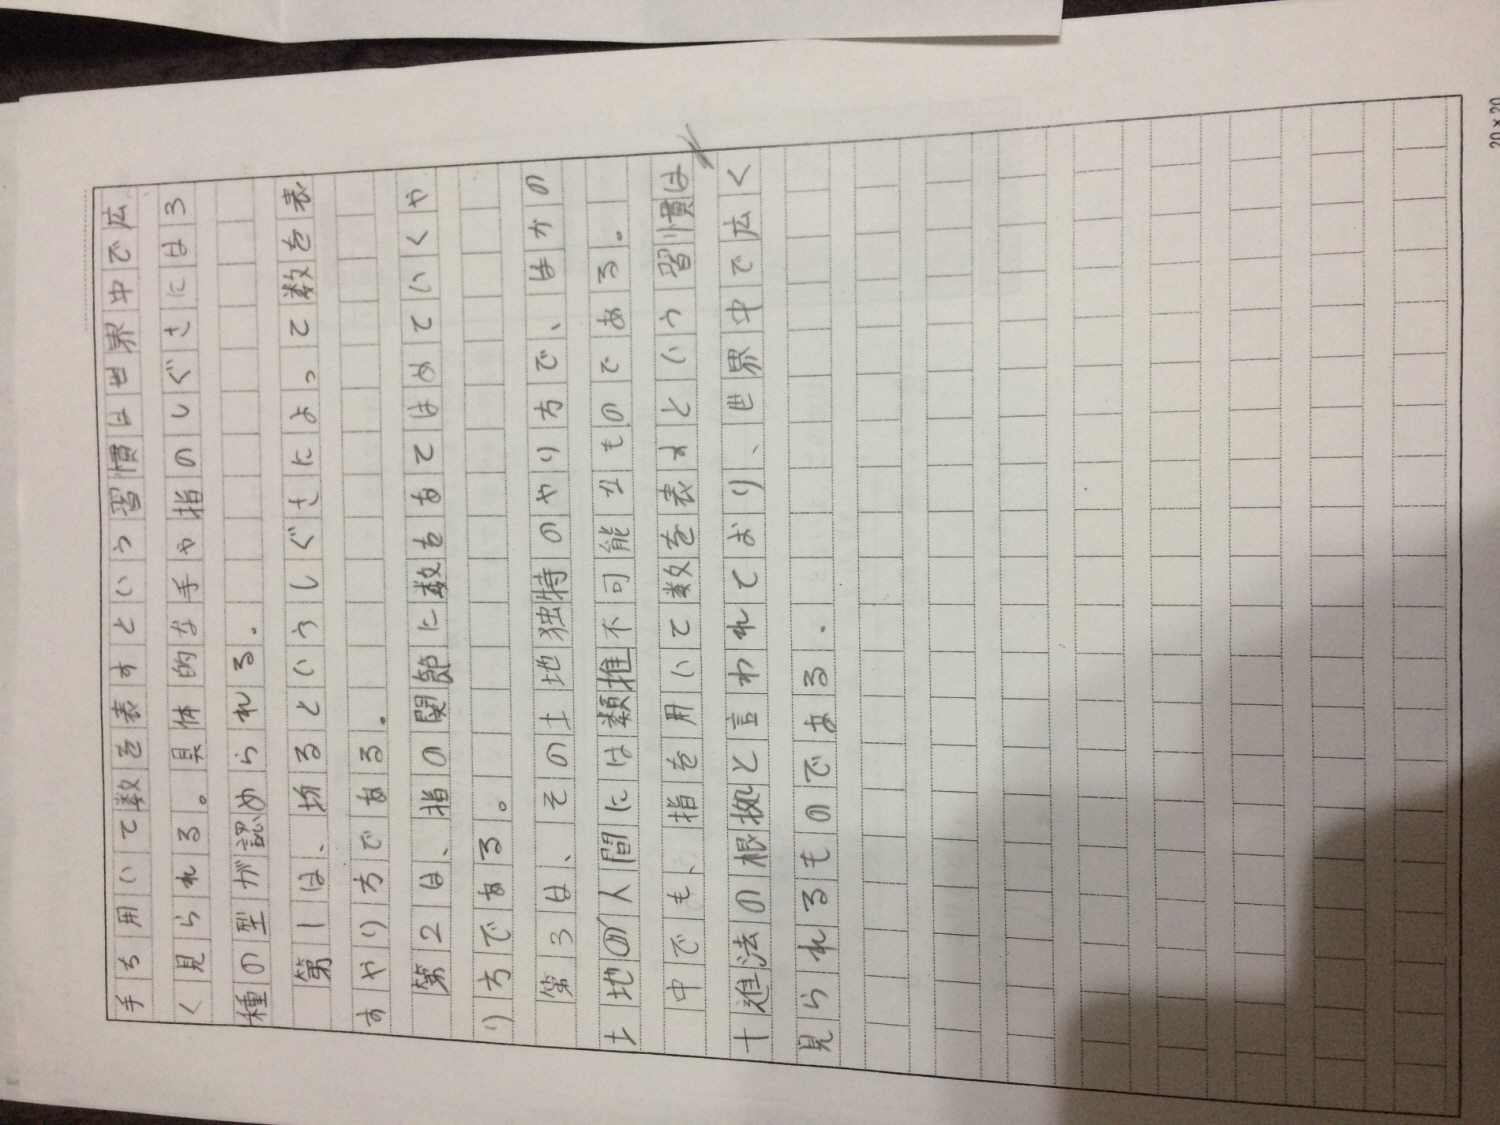 手ち用いて数を表すという習慣は世界中で広
く見られる。具体的な手や指のしぐさには3
種の型が認められる。
第1は、折るというしぐさによって数を表
すやり方である。
第2は、指の関節に数をあてはめていくや
り方である。
第3は、その土地独特のやり方で、ほかの
土地の人間には類推不可能なものである。
中でも、指を用いて数を表すという習慣は
十進法の根拠と言われており、世界中で広く
見られるものである.
20×20